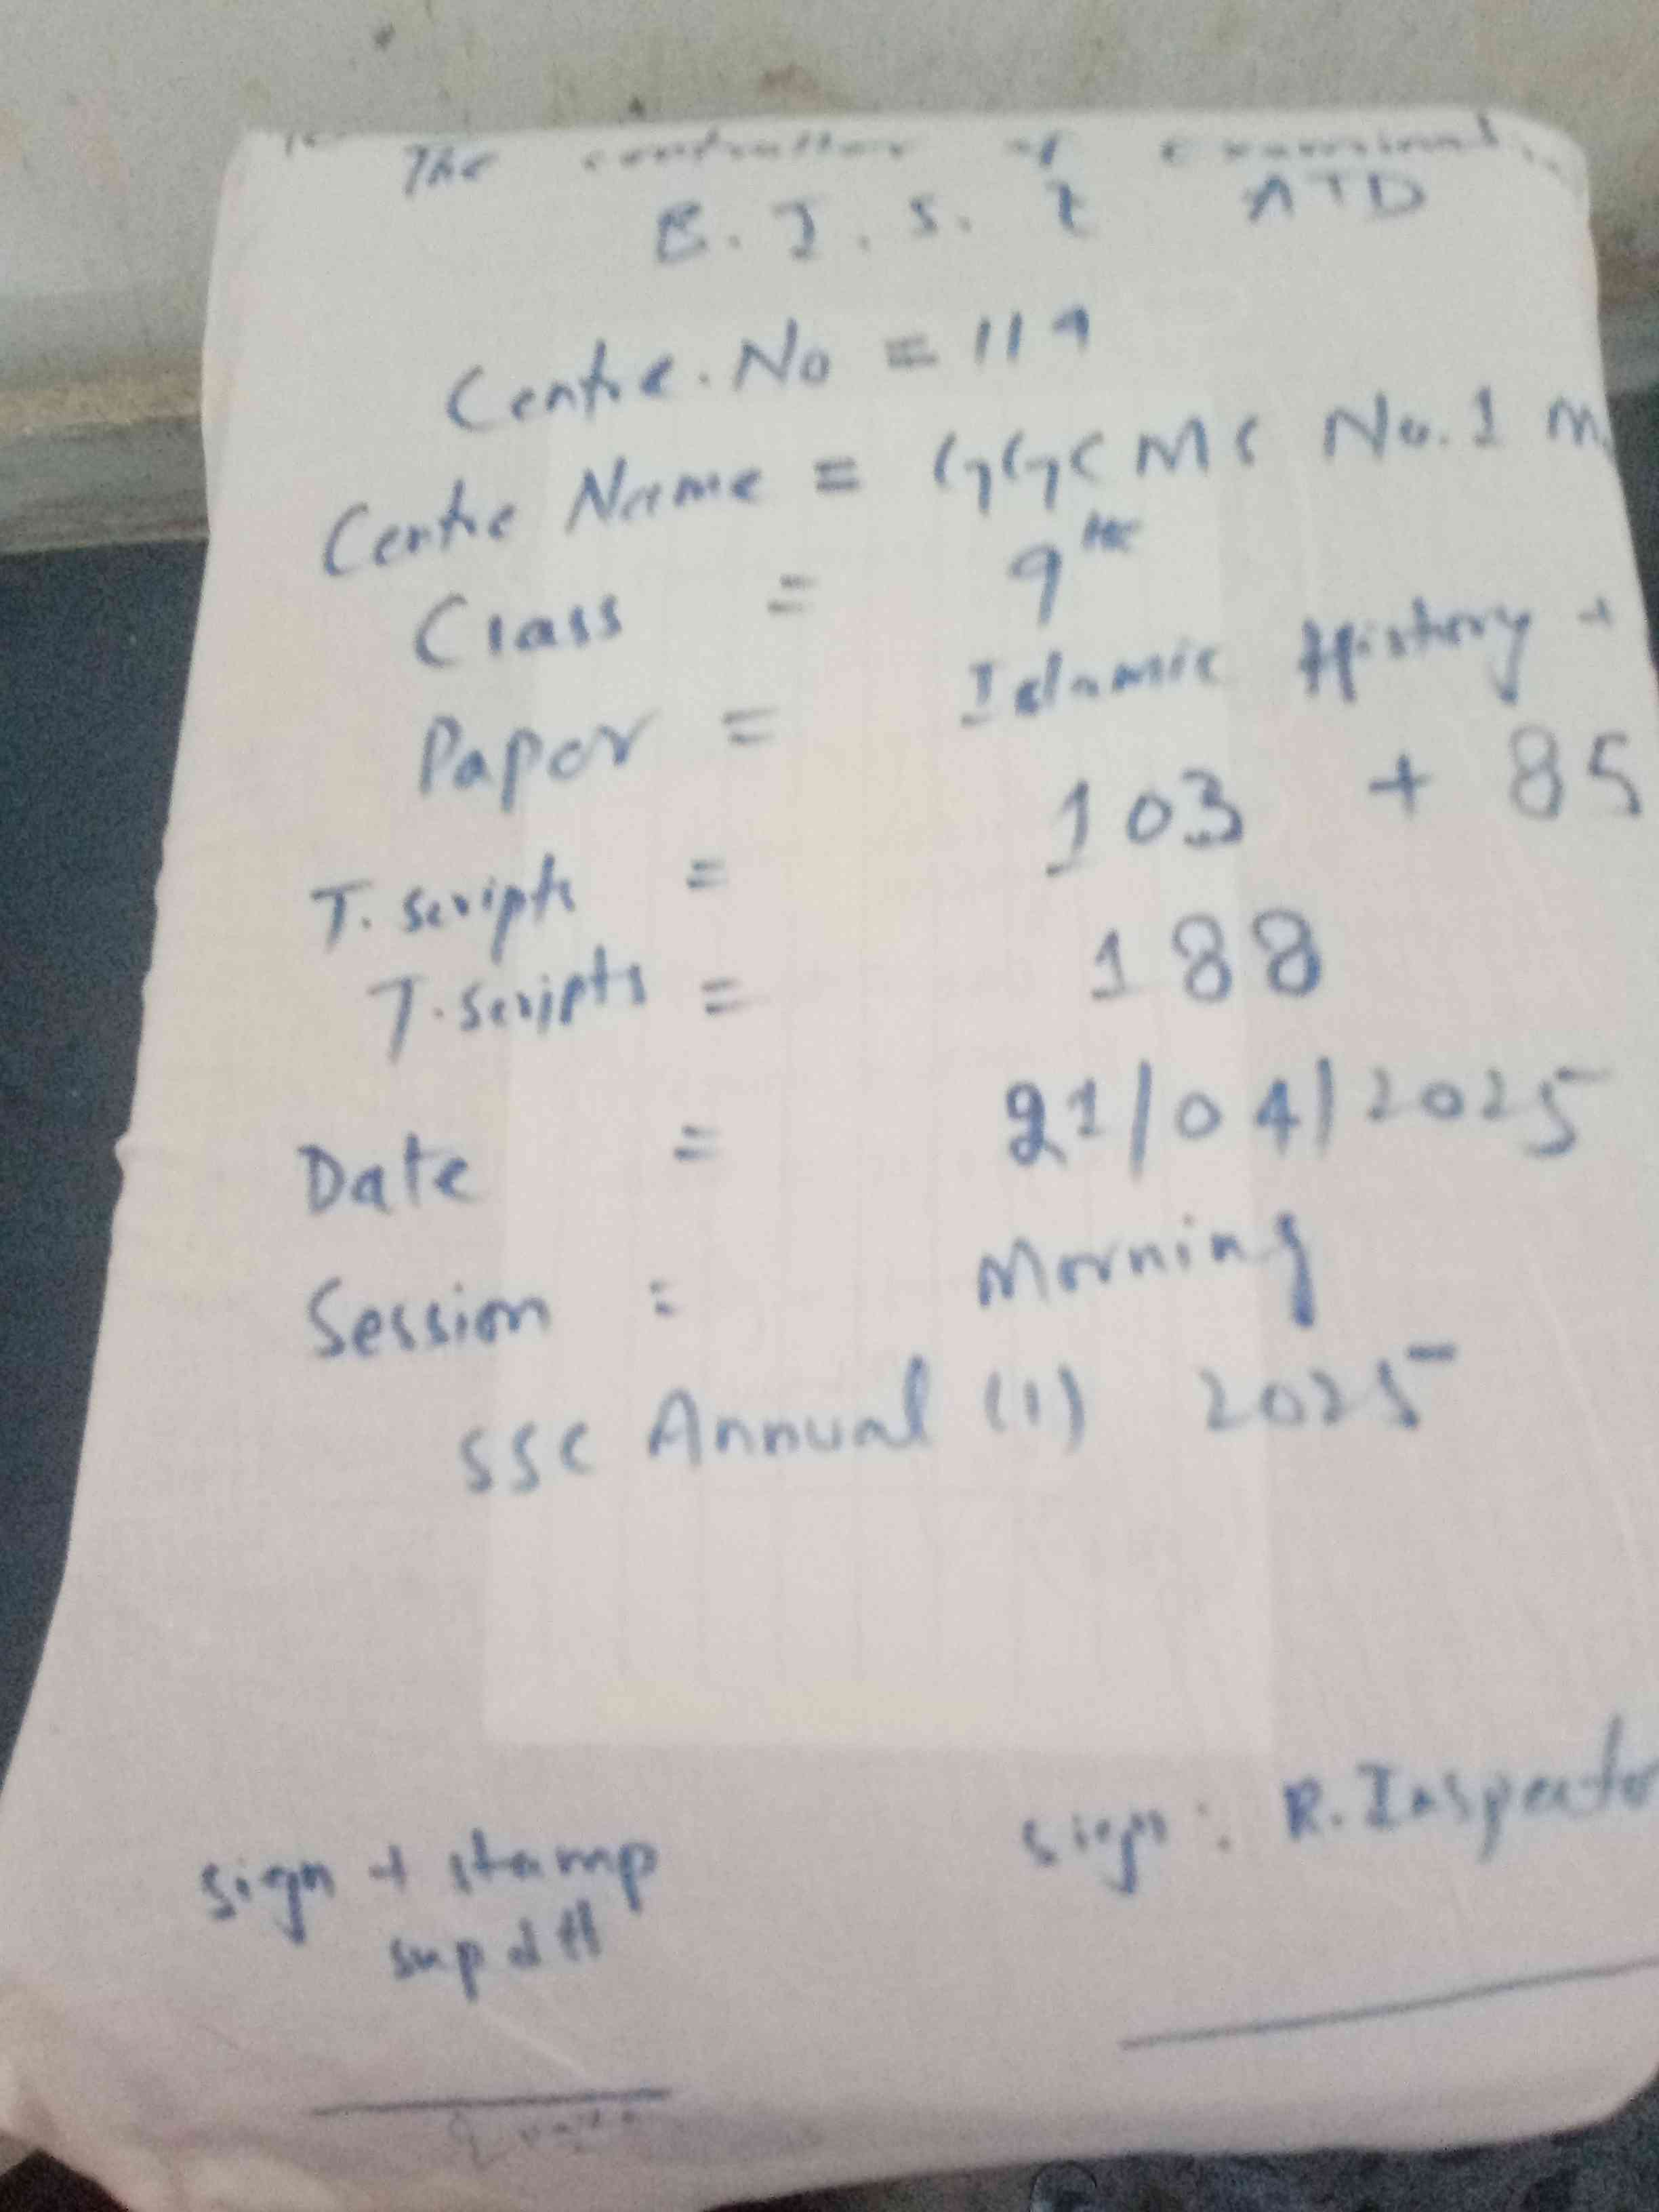 The controller of
B.I.S.E ATD
Centre.No = 119
Centre Name = GGCMS No.1 M
Class = 9th
Paper = Islamic History +
T. script = 103 + 85
T. scripts = 188
Date = 21/04/2025
Session = Morning
SSC Annual (1) 2025
sign + stamp
supdtt
sign: R. Inspector